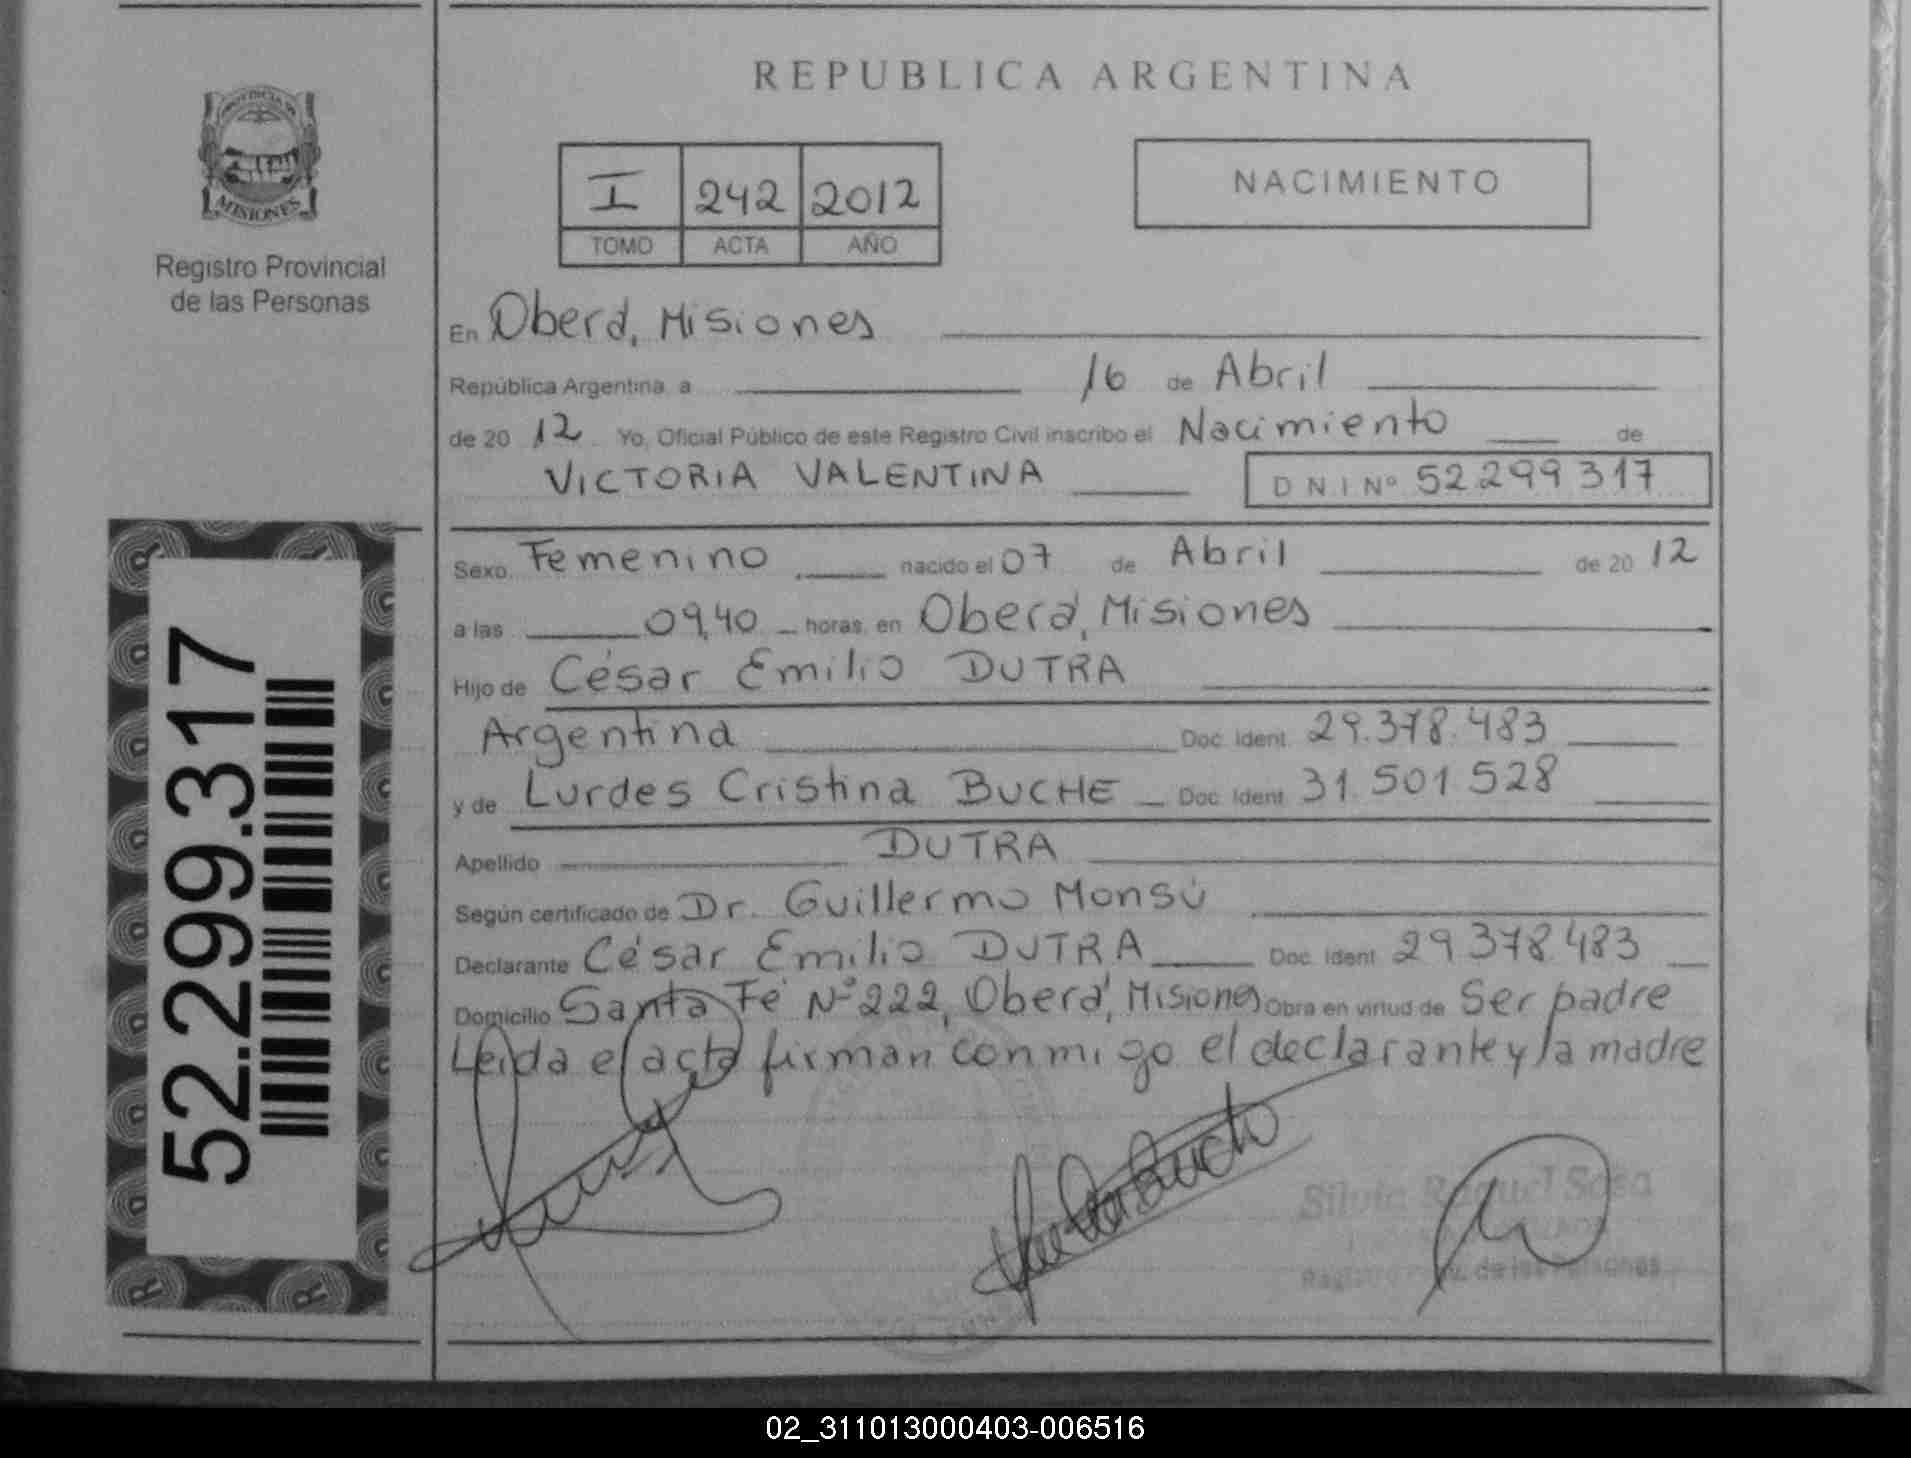 REPUBLICA ARGENTINA
PROVINCIA DE
MISIONES
Registro Provincial
de las Personas
I 242 2012
TOMO ACTA AÑO
NACIMIENTO
En Oberá, Misiones
República Argentina, a 16 de Abril
de 20 12 Yo, Oficial Público de este Registro Civil inscribo el Nacimiento de
VICTORIA VALENTINA D N I Nº 52.299 317
Sexo Femenino nacido el 07 de Abril de 20 12
a las 09,40 horas, en Oberá, Misiones
Hijo de César Emilio DUTRA
Argentina Doc. Ident. 29.378.483
y de Lurdes Cristina BUCHE Doc. Ident. 31.501 528
Apellido DUTRA
Según certificado de Dr. Guillermo Monsú
Declarante César Emilio DUTRA Doc. Ident. 29 378.483
Domicilio Santa Fé Nº 222, Oberá, Misiones Obra en virtud de Ser padre
Leída el acta firman conmigo el declarante y la madre
Silvia Raquel Sosa
de las Personas
52.299.317
02_311013000403-006516